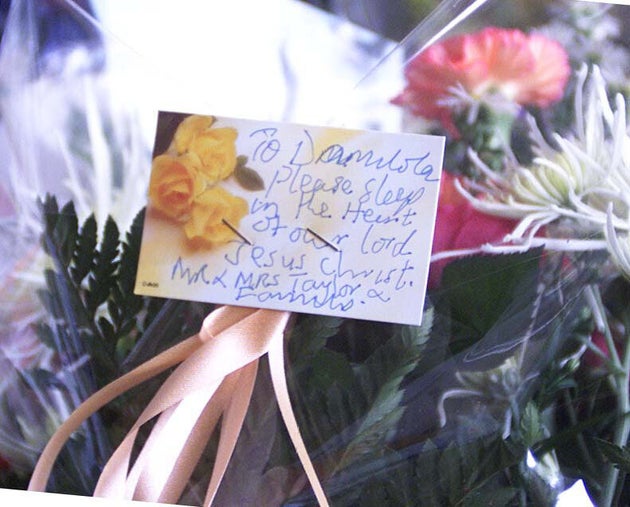 To Damilola
please sleep
in the Heart
of our lord
Jesus Christ.
MR & MRS Taylor &
Families.